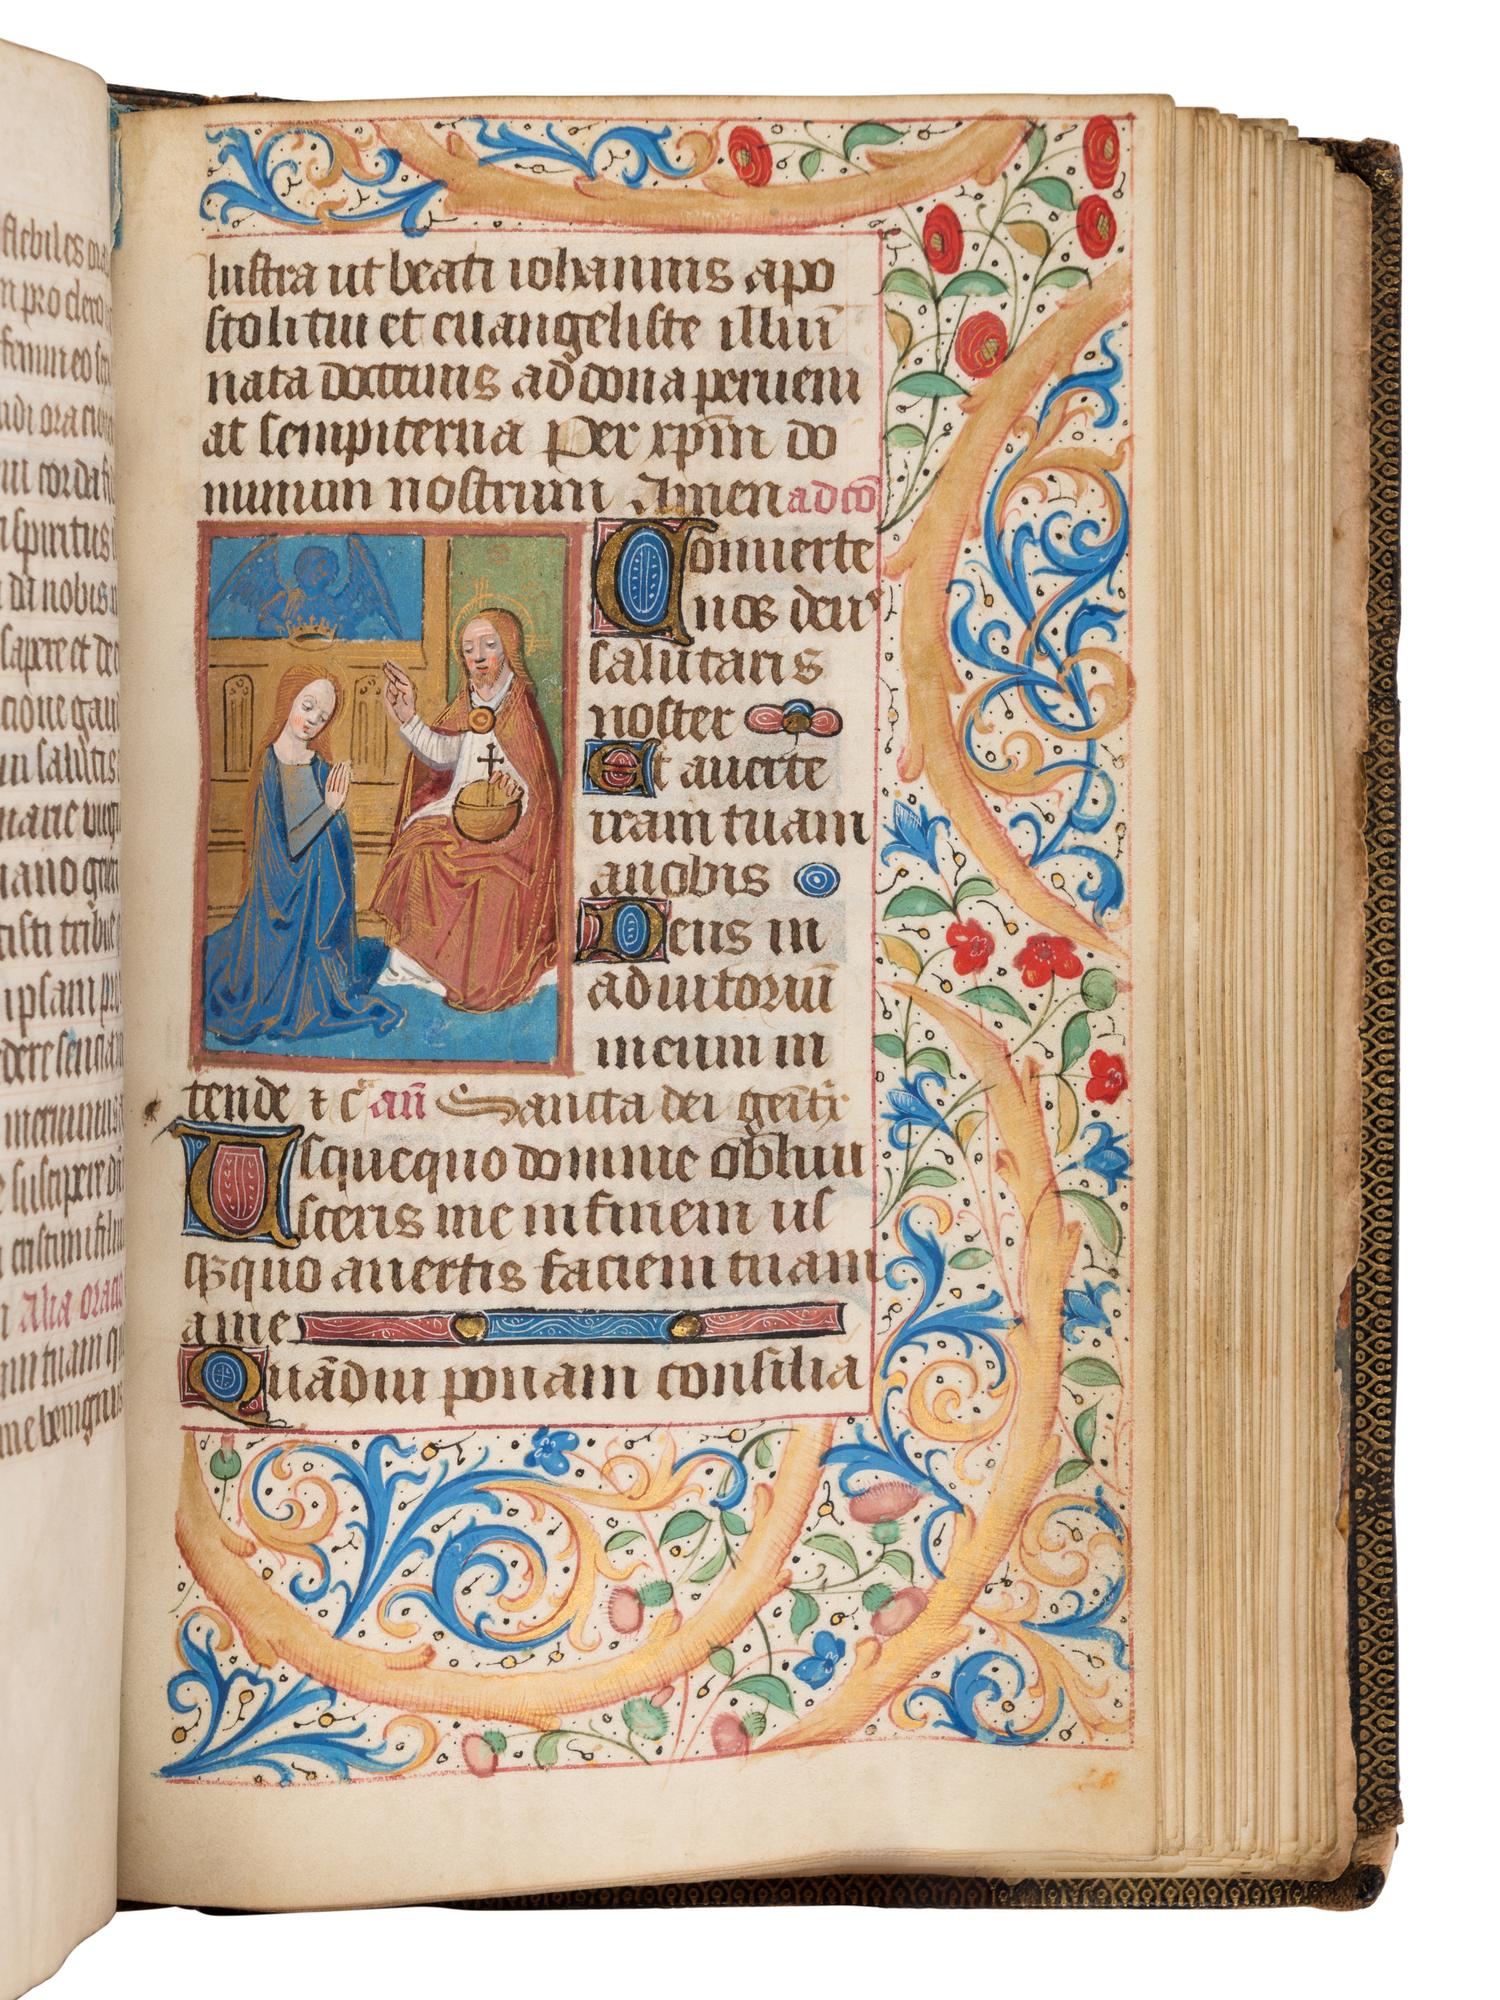 flebiles
pro clero
femineo
corda
spiritus
da nobis
sapere et
salutis
marie
tribue
ipsam
suscipere
Alia
tuam
benignus
lustra ut beati iohannis apo
stoli tui et euangeliste illuī
nata doctrinis ad dona perueni
at sempiterna Per xpm̄ do
minum nostrum Amen ad cō
Conuerte
nos deus
salutaris
noster
Et auerte
iram tuam
a nobis
Deus in
adiutoriū
meum in
tende ⁊ c̄ an̄ Sancta dei genitr̄
Usquequo domine obliui
sceris me in finem us
qꝫquo auertis faciem tuam
a me
Quādiu ponam consilia